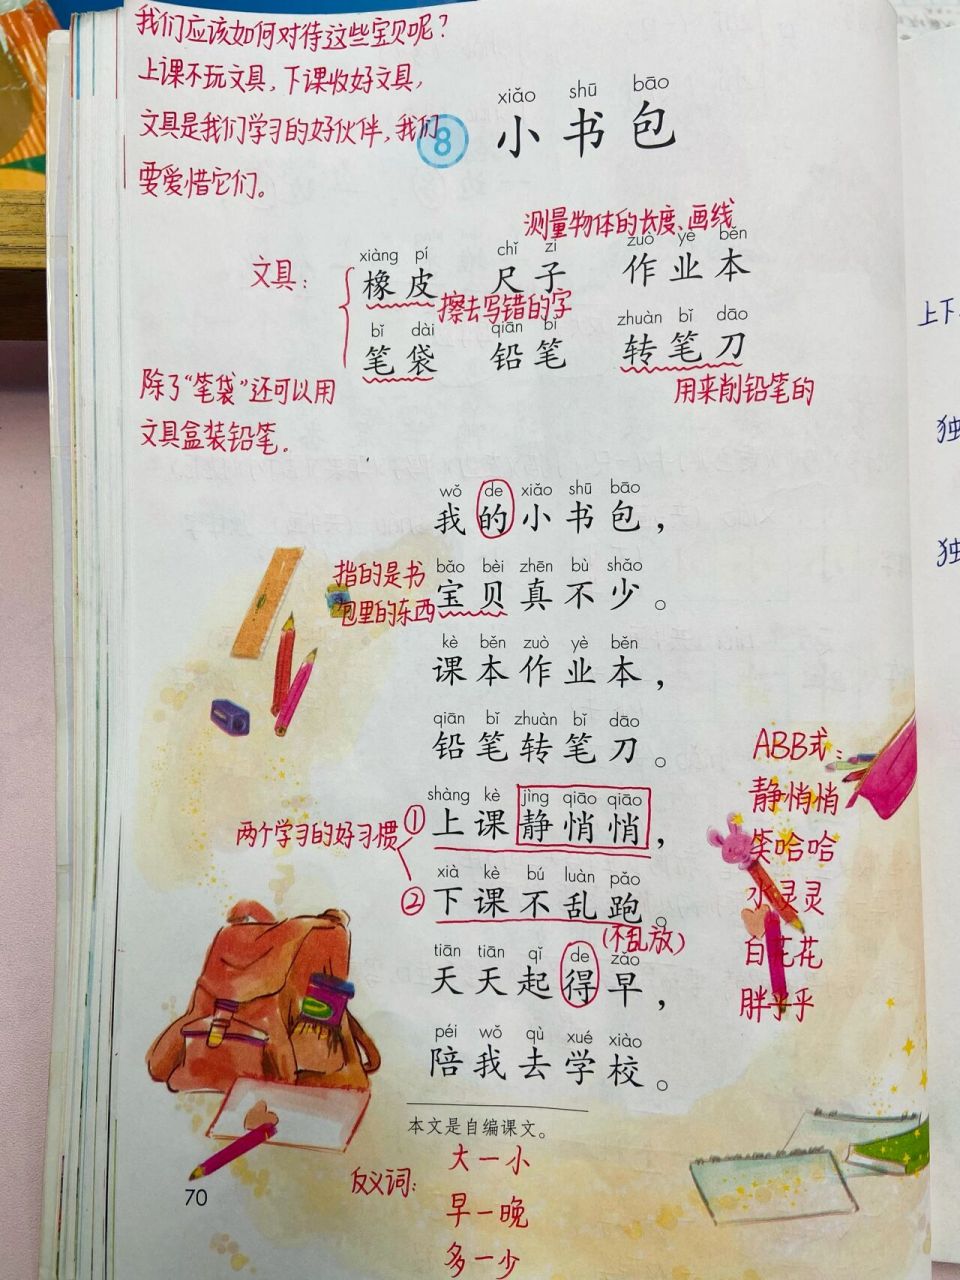 我们应该如何对待这些宝贝呢？
上课不玩文具，下课收好文具，
文具是我们学习的好伙伴，我们
要爱惜它们。
xiǎo shū bāo
8 小书包
测量物体的长度、画线
xiàng pí chǐ zi zuò yè běn
文具： 橡皮 尺子 作业本
擦去写错的字
bǐ dài qiān bǐ zhuàn bǐ dāo
笔袋 铅笔 转笔刀
除了“笔袋”还可以用
文具盒装铅笔。
用来削铅笔的
wǒ de xiǎo shū bāo
我的小书包，
指的是书
包里的东西
bǎo bèi zhēn bù shǎo
宝贝真不少。
kè běn zuò yè běn
课本作业本，
qiān bǐ zhuàn bǐ dāo
铅笔转笔刀。
两个学习的好习惯
shàng kè jìng qiāo qiāo
①上课静悄悄，
xià kè bú luàn pǎo
②下课不乱跑。
(不乱放)
tiān tiān qǐ de zǎo
天天起得早，
péi wǒ qù xué xiào
陪我去学校。
ABB式：
静悄悄
笑哈哈
水灵灵
白花花
胖乎乎
本文是自编课文。
反义词：
大—小
早—晚
多—少
70
上下
独
独